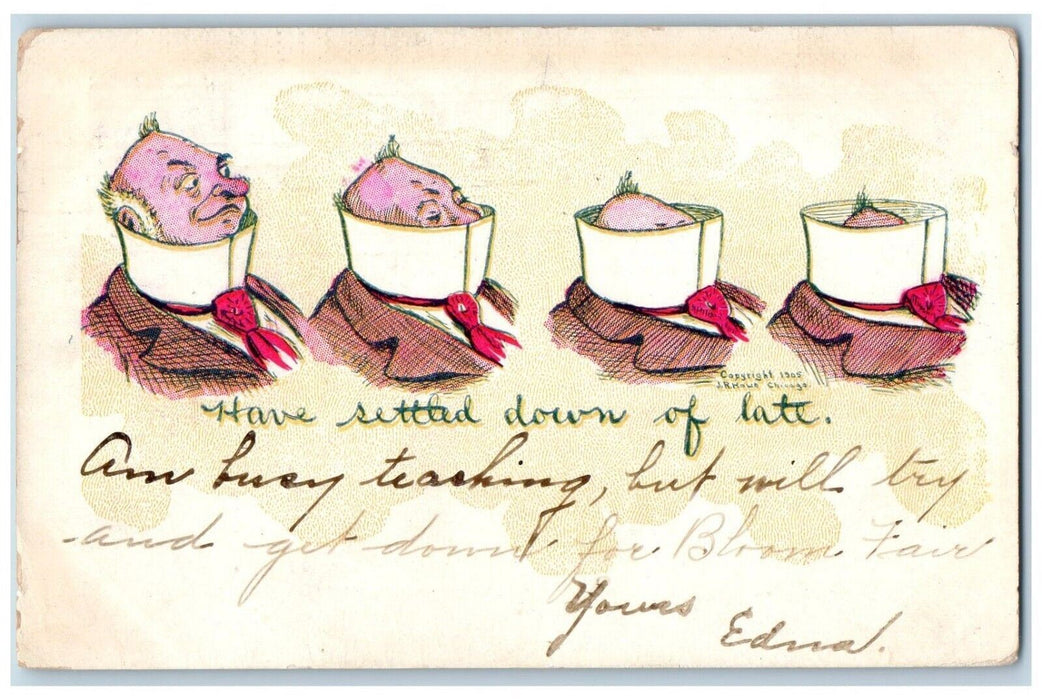 Copyright 1905
Chicago.
Have settled down of late.
Am busy teaching, but will try
and get down for Bloom Fair
Yours
Edna.